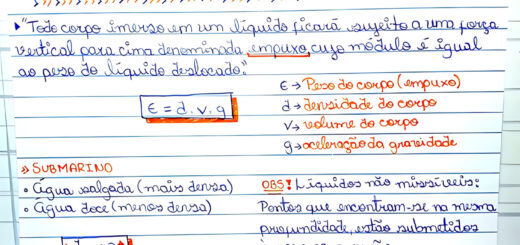 "Todo corpo imerso em um líquido ficará sujeito a uma força
vertical para cima denominada empuxo, cujo módulo é igual
ao peso do líquido deslocado."
E = d.v.g
E → Peso do corpo (empuxo)
d → densidade do corpo
V → volume do corpo
g → aceleração da gravidade
» SUBMARINO
• Água salgada (mais densa)
• Água doce (menos densa)
OBS! Líquidos não missíveis:
Pontos que encontram-se na mesma
profundidade, estão submetidos